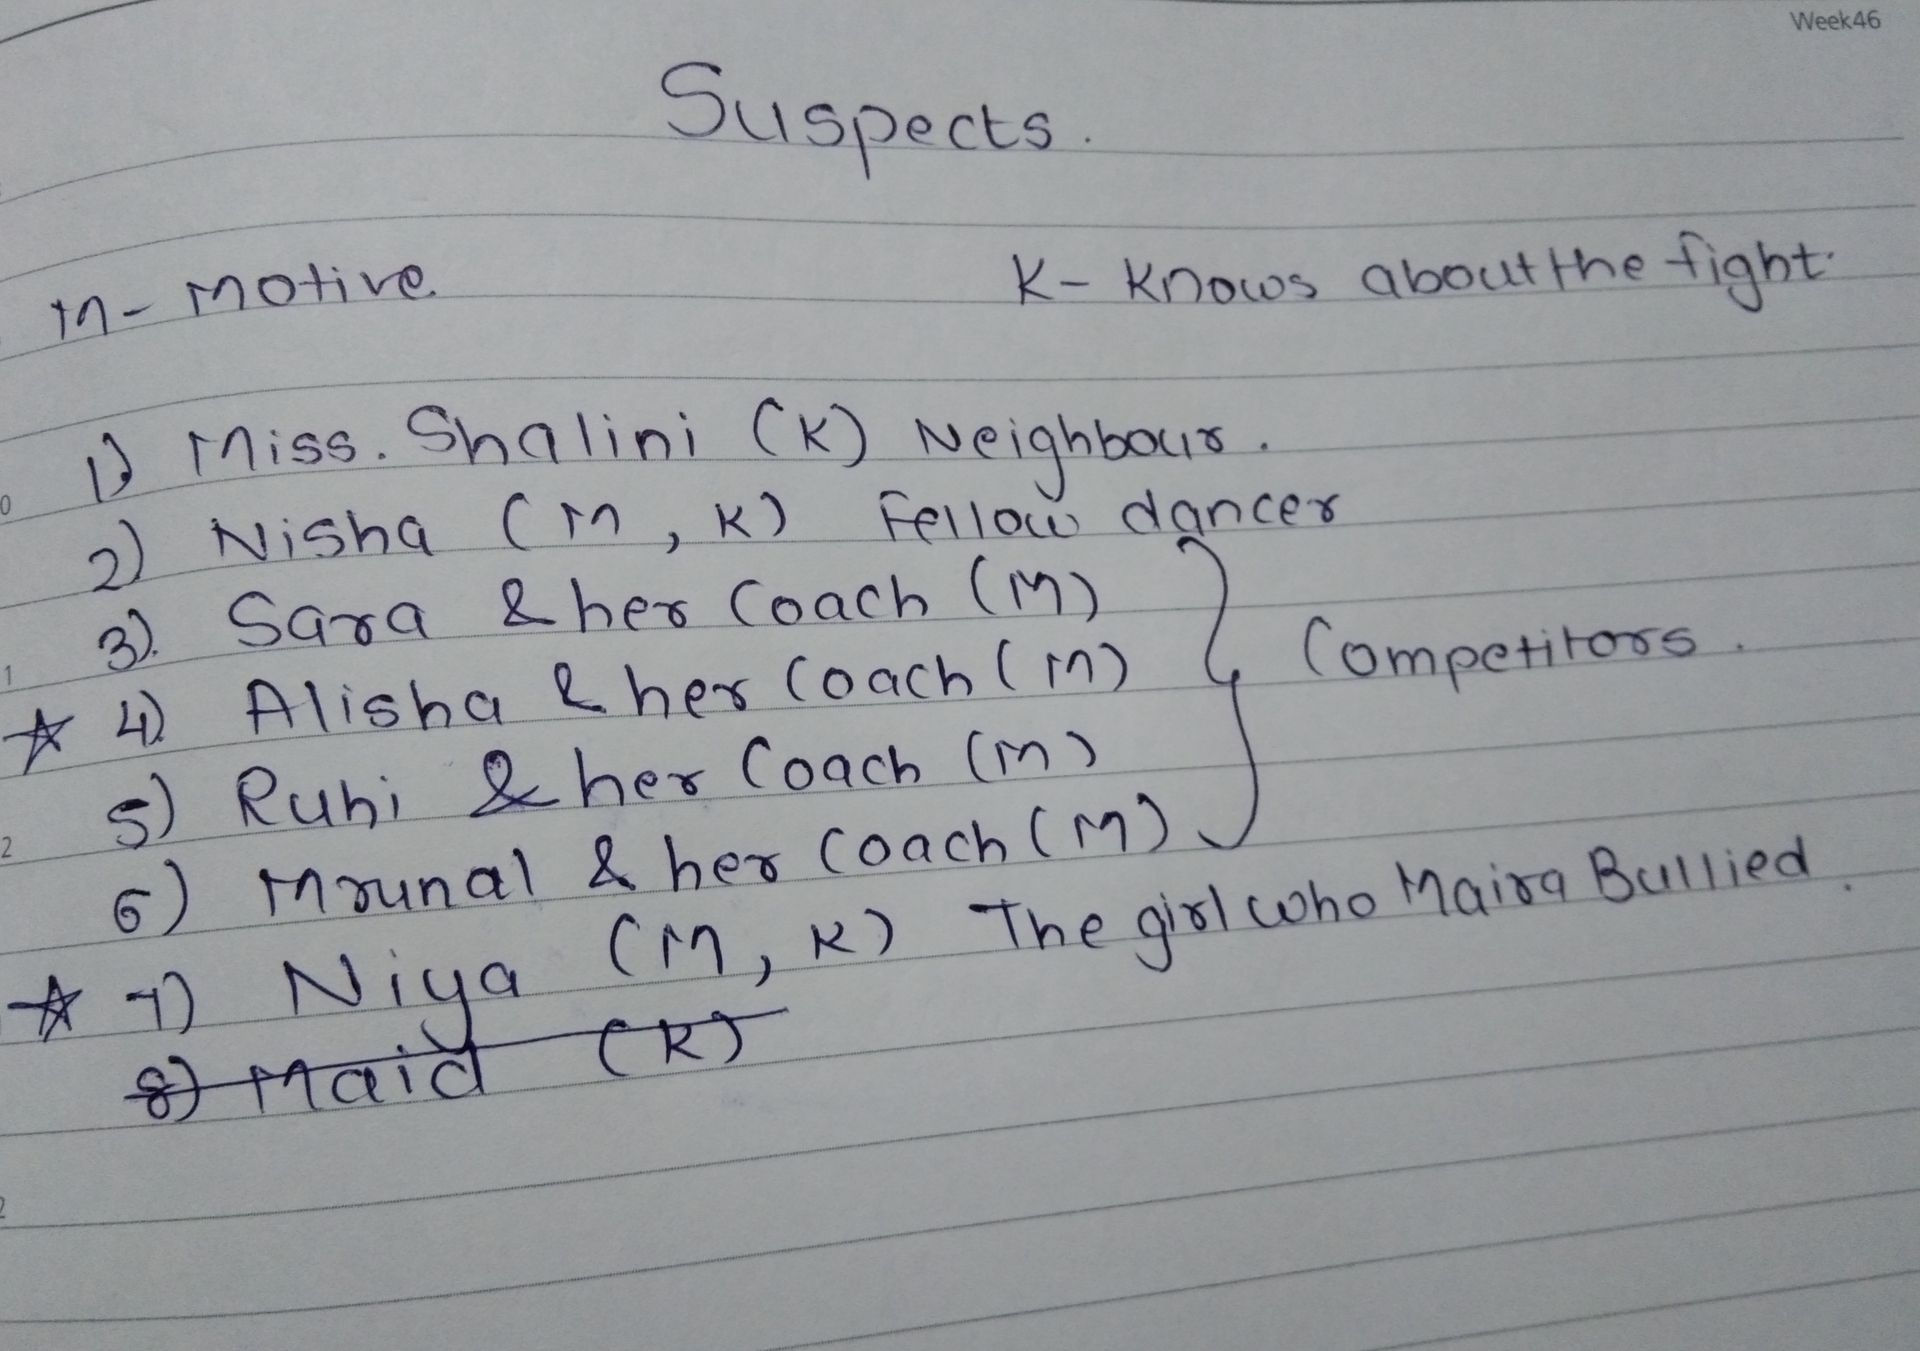 Week46
Suspects.
M- Motive K- Knows about the fight.
1) Miss. Shalini (K) Neighbour.
2) Nisha (M, K) Fellow dancer
3). Sara & her Coach (M)
☆ 4) Alisha & her Coach (M) } Competitors.
5) Ruhi & her Coach (M)
6) Mrunal & her Coach (M)
☆ 7) Niya (M, K) The girl who Maira Bullied.
8) Maid (K)